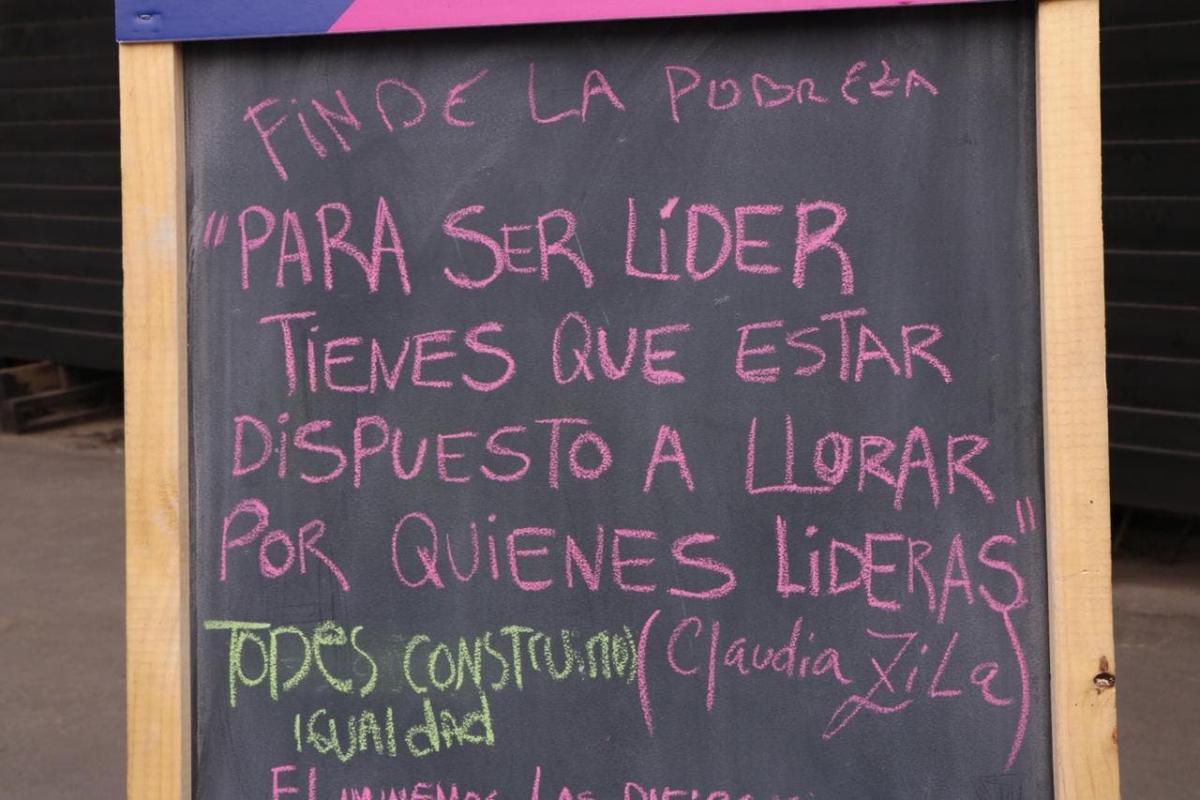 FiN DE LA POBREZA
"PARA SER LÍDER
TiENES QUE ESTAR
DiSPUESTO A LLORAR
POR QUiENES LiDERAS"
TODES CONSTRUIMOS (Claudia ZiLa)
IGUALdAd
ELIMINEMOS LAS